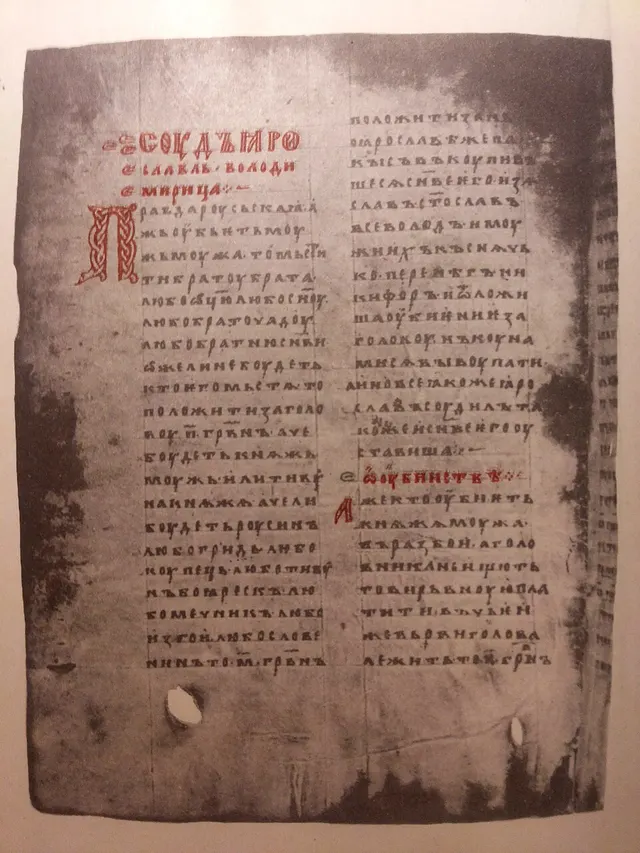 СОУДЪ ꙖРО
СЛАВЛЬ · ВОЛОДИ
МИРИЦА :·—
Правда роусьскаꙗ · а
жь оубьѥть моу
жь моужа · то мьсти
ти братоу брата ·
любо ѿцю любо сн҃оу
любо братоучадоу
любо братню сн҃ви
ѡже ли не боудеть
кто ѥго мьстѧ то
положити за голо
воу · п҃ · грвн҃ъ · аче
боудеть кнѧжь
моужь · или тиоу
на кнѧжѧ аче ли
боудеть роусинъ
любо гридь · любо
коупець · любо тивоу
нъ боꙗрескъ · лю
бо мечникъ · любо
изгои · любо слове
нинъ то · м҃ · грвн҃ъ
положити за нь
по ꙗрославѣ же па
кы съвъкоупивъ
шесѧ сн҃ве ѥго изѧ
славъ ст҃ославъ
всеволодъ и моу
жи ихъ къснѧчь
ко перенѣгъ ни
кифоръ и ѿложи
ша оубиѥниѥ за
головоу нъ коуна
ми сѧ выкоупати
а ино все ꙗкоже ꙗро
славъ соудилъ та
коже и сн҃ве ѥго оу
ставиша :·—
ѡ оубиствѣ :·
Аже кто оубиѥть
кнѧжѧ моужа
въ разбои · а голо
вника не ищють
то вирьвноую пла
тити · въ чьѥи
же вьрви голова
лежить то п҃ грвн҃ъ